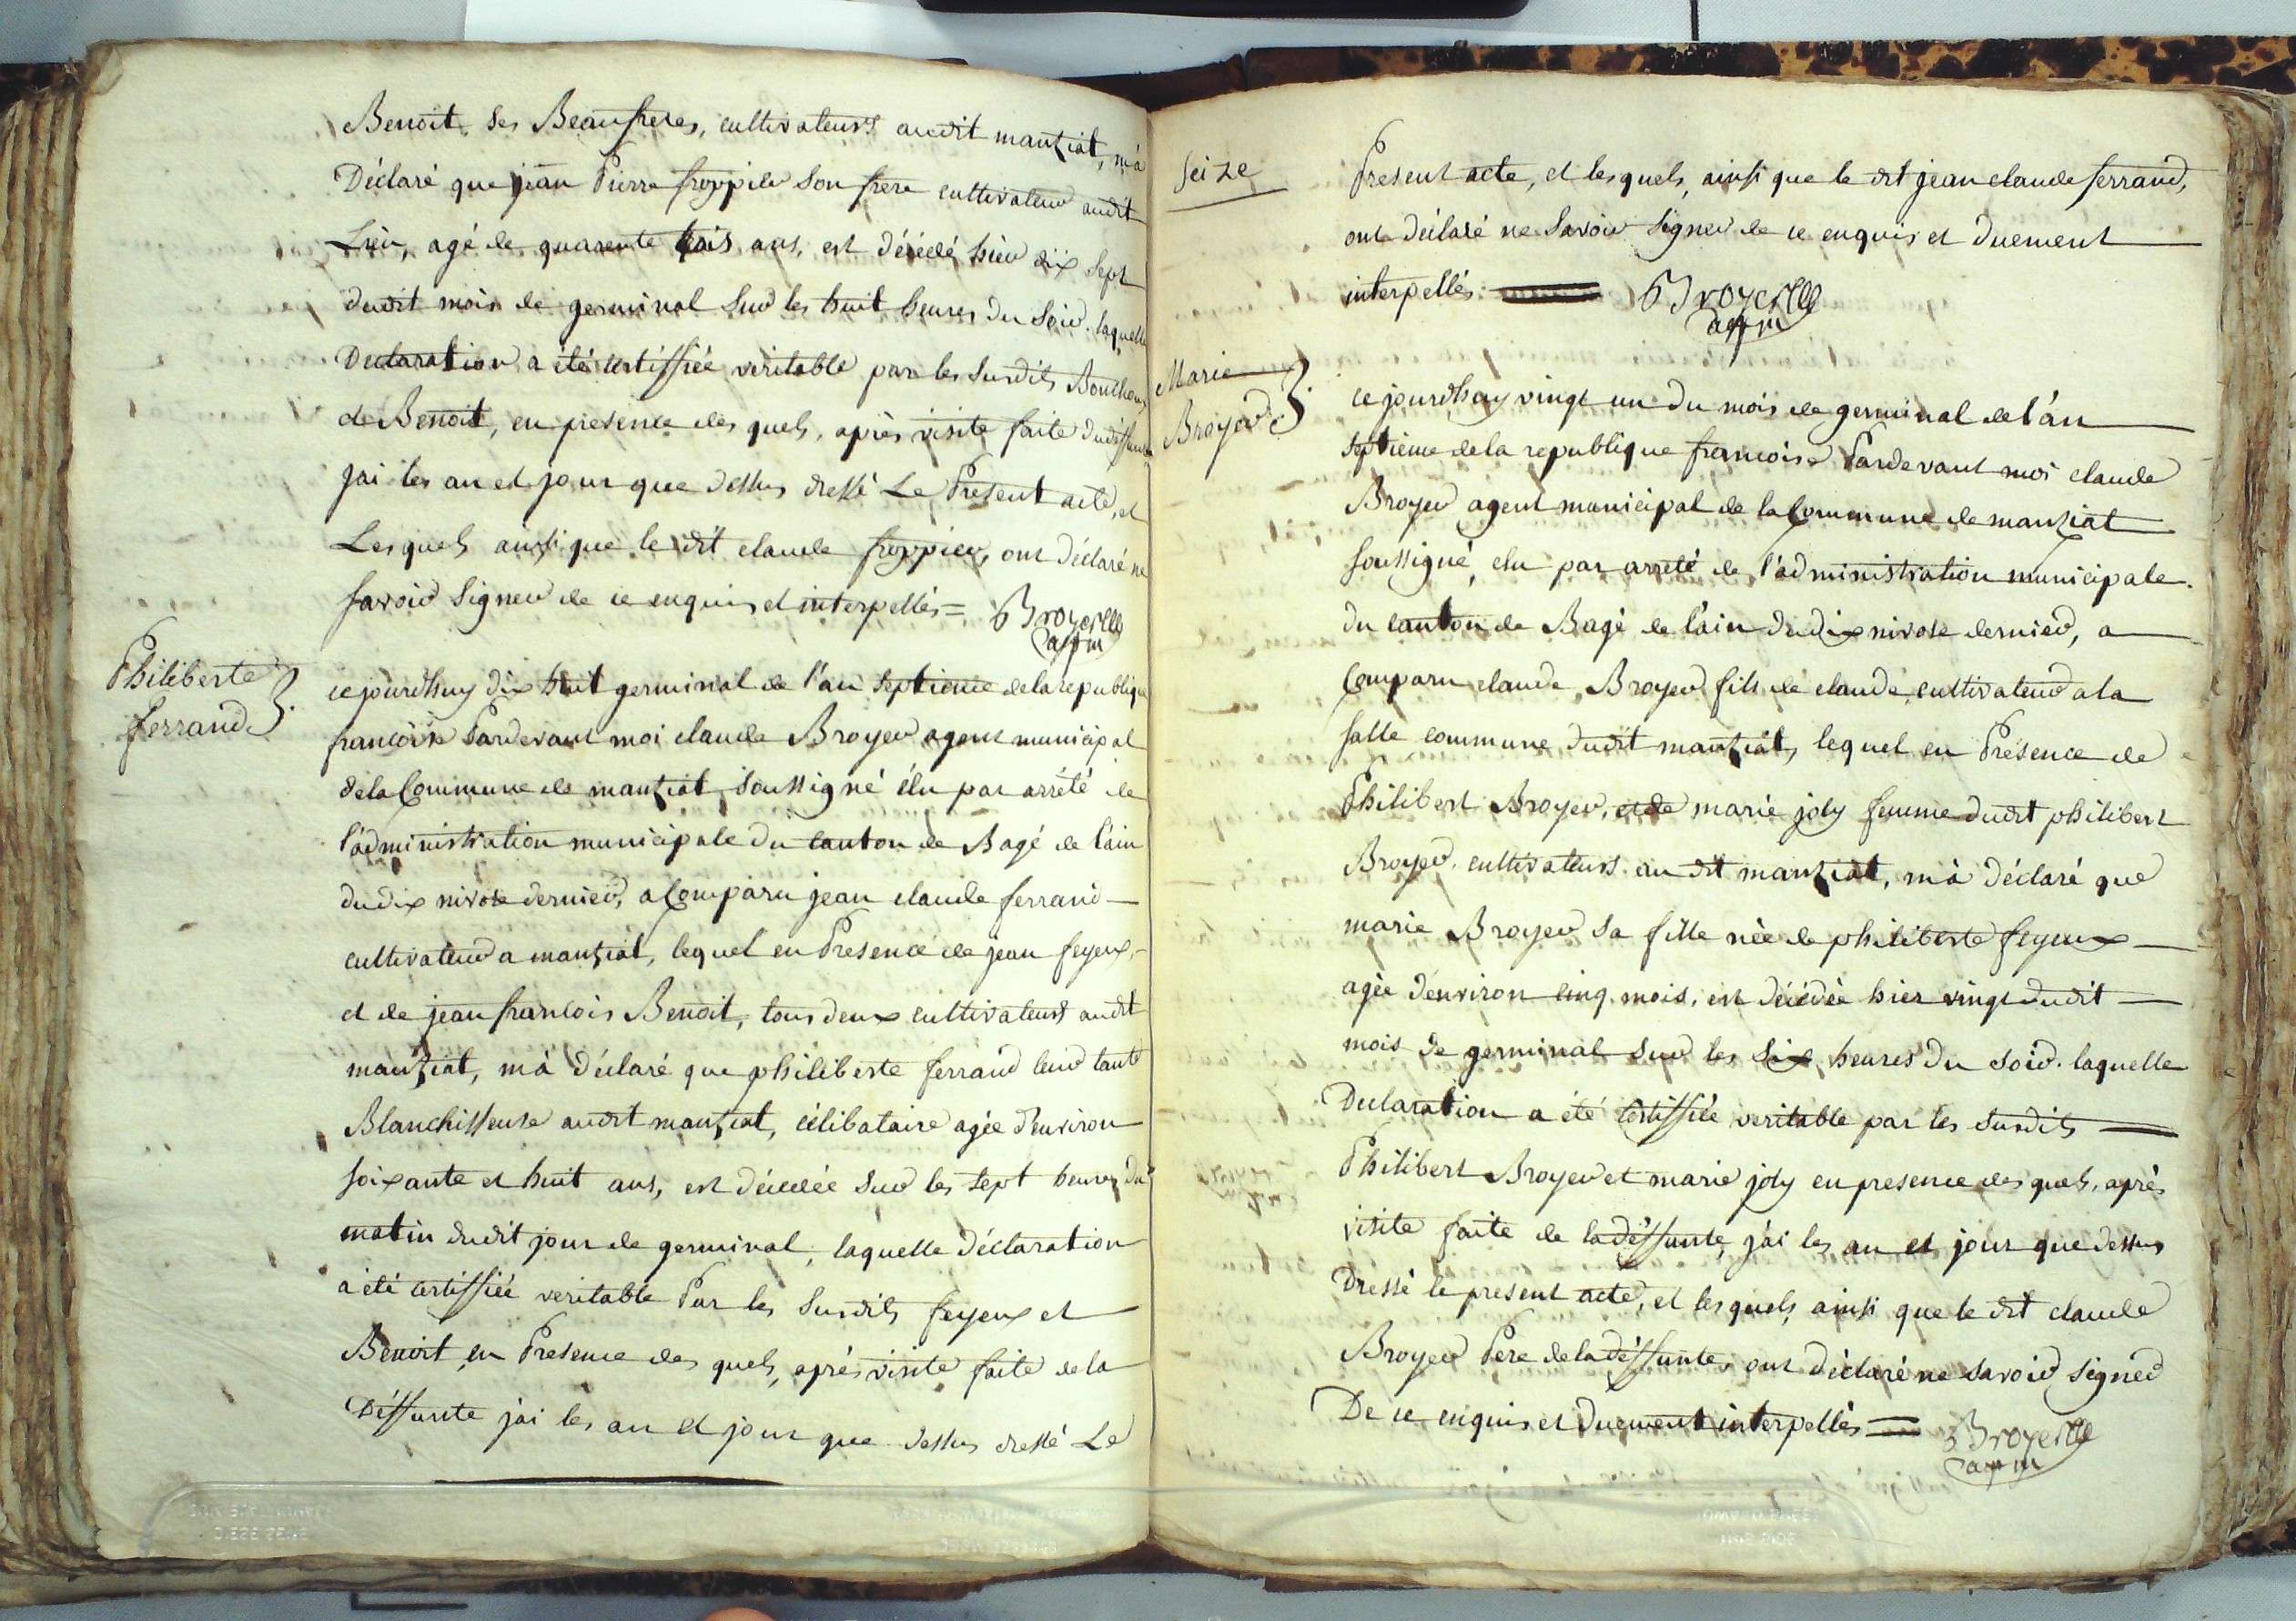 Benoit, ses Beaufreres, cultivateurs audit mantziat, m'à
Déclaré que jean Pierre froppier son frere cultivateur audit
Lieu, agé de quarente trois ans, est décédé hier dix sept
dudit mois de germinal sur les huit heures du soir. laquelle
Declaration a été certiffiée veritable par les susdits Bouchoux
et Benoit, en presence des quels, après visite faite du deffunt
jai les an et jour que dessus dressé Le Present acte, et
Lesquels ainsi que le dit claude froppier, ont déclaré ne
savoir signer de ce enquis et interpellés = Broyer
agm
Philiberte
ferrand
cejourdhuy dix huit germinal de l'an septieme dela republique
francoise Pardevant moi claude Broyer agent municipal
dela Commune de mantziat soussigné élu par arrété de
l'administration municipale du canton de Bagé de l'ain
du dix nivose dernier, a Comparu jean claude ferrand
cultivateur a mantziat, lequel en Presence de jean feyeux,
et de jean francois Benoit, tous deux cultivateurs audit
mantziat, m'à déclaré que philiberte ferrand leur tante
Blanchisseuse audit mantziat, célibataire agée d'environ
soixante et huit ans, est décédée sur les sept heures du
matin dudit jour de germinal, laquelle déclaration
a été certiffiée veritable Par les susdits feyeux et
Benoit en Presence des quels, après visite faite de la
Déffunte jai les an et jour que dessus dressé Le
seize
Present acte, et lesquels, ainsi que le dit jean claude ferrand,
ont déclaré ne savoir signer de ce enquis et duement
interpellés Broyer
agm
Marie
Broyer
cejourdhuy vingt un du mois de germinal de l'an
septieme dela republique francoise Pardevant moi claude
Broyer agent municipal de la Commune de mantziat
soussigné, elu par arreté de l'administration municipale
du canton de Bagé de l'ain du dix nivose dernier, a
Comparu claude Broyer fils de claude cultivateur a la
salle commune dudit mantziat, lequel en Presence de
Philibert Broyer, et de marie joly femme dudit philibert
Broyer, cultivateurs audit mantziat, m'à déclaré que
marie Broyer sa fille née de philiberte feyeux
agée d'environ cinq mois, est décédée hier vingt dudit
mois de germinal sur les six heures du soir. laquelle
Declaration a été certiffiée veritable par les susdits
Philibert Broyer et marie joly en presence des quels, après
visite faite de la déffunte, j'ai les an et jour que dessus
Dressé le present acte, et lesquels ainsi que le dit claude
Broyer Pere de la déffunte, ont déclaré ne savoir signer
De ce enquis et duement interpellés = Broyer
agm